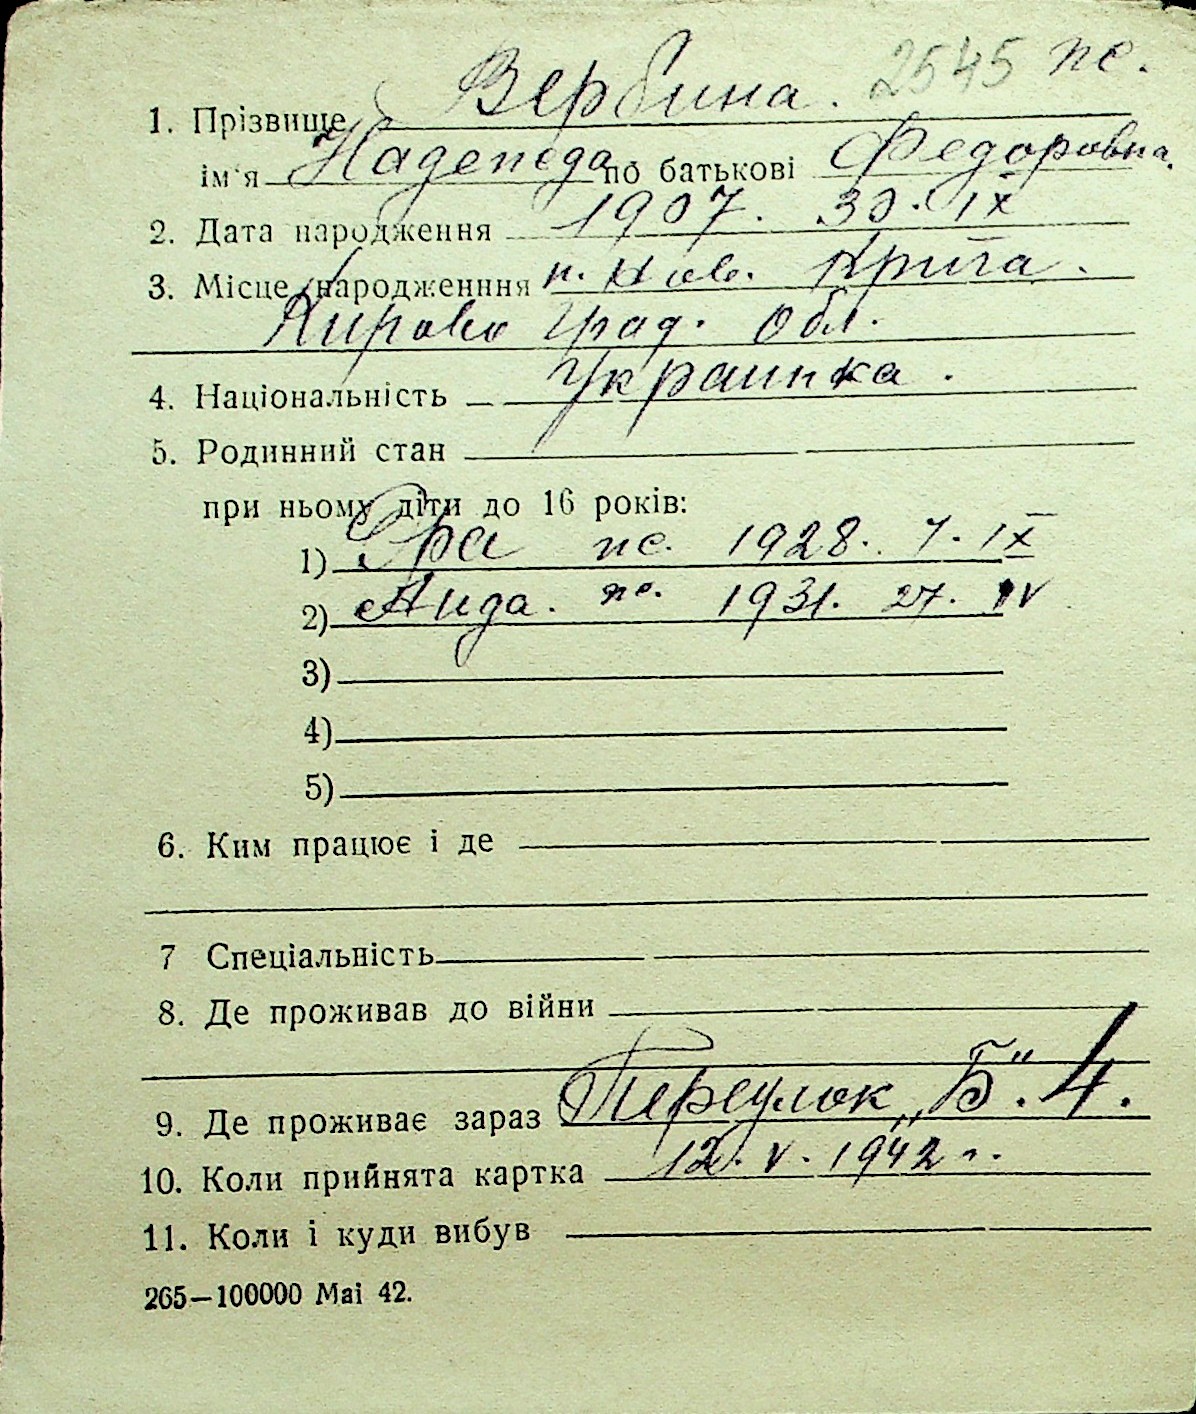 2545 пс.
1. Прізвище Вербина.
ім'я Надежда по батькові Федоровна.
2. Дата народження 1907. 30. IX
3. Місце народженння н. Нов. Прага.
Кировоград. Обл.
4. Національність Украинка.
5. Родинний стан
при ньому діти до 16 років:
1) Эра пс. 1928. 7. IX
2) Аида. пс. 1931. 27. IV
3)
4)
5)
6. Ким працює і де
7 Спеціальність
8. Де проживав до війни
9. Де проживає зараз Переулок „Б". 4.
10. Коли прийнята картка 12. V. 1942 г.
11. Коли і куди вибув
265—100000 Маі 42.